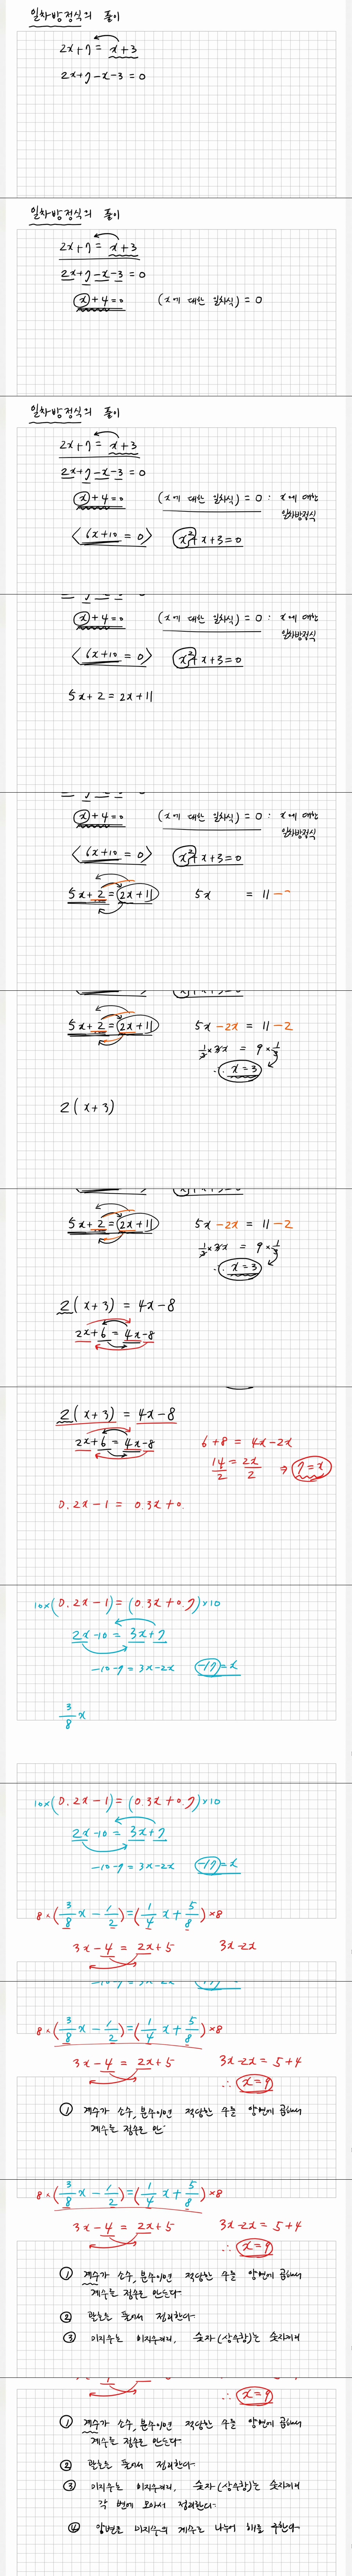 일차방정식의 풀이
2x+7 = x+3
2x+7-x-3=0
일차방정식의 풀이
2x+7 = x+3
2x+7-x-3=0
x+4=0 (x에 대한 일차식) = 0
일차방정식의 풀이
2x+7 = x+3
2x+7-x-3=0
x+4=0 (x에 대한 일차식) = 0 : x에 대한
일차방정식
〈6x+10 = 0〉 x²+x+3=0
x+4=0 (x에 대한 일차식) = 0 : x에 대한
일차방정식
〈6x+10 = 0〉 x²+x+3=0
5x+2 = 2x+11
x+4=0 (x에 대한 일차식) = 0 : x에 대한
일차방정식
〈6x+10 = 0〉 x²+x+3=0
5x+2 = 2x+11 5x = 11 -
5x+2 = 2x+11 5x-2x = 11-2
1/3×3x = 9×1/3
∴ x=3
2(x+3)
5x+2 = 2x+11 5x-2x = 11-2
1/3×3x = 9×1/3
∴ x=3
2(x+3) = 4x-8
2x+6 = 4x-8
2(x+3) = 4x-8
2x+6 = 4x-8 6+8 = 4x-2x
14/2 = 2x/2 ⇒ 7=x
0.2x-1 = 0.3x+0.
10×(0.2x-1) = (0.3x+0.7)×10
2x-10 = 3x+7
-10-7 = 3x-2x -17=x
3/8 x
10×(0.2x-1) = (0.3x+0.7)×10
2x-10 = 3x+7
-10-7 = 3x-2x -17=x
8×(3/8 x - 1/2) = (1/4 x + 5/8)×8
3x-4 = 2x+5 3x-2x
-10-7 = 3x-2x
8×(3/8 x - 1/2) = (1/4 x + 5/8)×8
3x-4 = 2x+5 3x-2x = 5+4
∴ x=9
① 계수가 소수, 분수이면 적당한 수를 양변에 곱해서
계수를 정수로 만
8×(3/8 x - 1/2) = (1/4 x + 5/8)×8
3x-4 = 2x+5 3x-2x = 5+4
∴ x=9
① 계수가 소수, 분수이면 적당한 수를 양변에 곱해서
계수를 정수로 만든다
② 괄호는 풀어서 정리한다
③ 미지수는 미지수끼리, 숫자(상수항)는 숫자끼리
∴ x=9
① 계수가 소수, 분수이면 적당한 수를 양변에 곱해서
계수를 정수로 만든다
② 괄호는 풀어서 정리한다
③ 미지수는 미지수끼리, 숫자(상수항)는 숫자끼리
각 변에 모아서 정리한다
④ 양변을 미지수의 계수로 나누어 해를 구한다